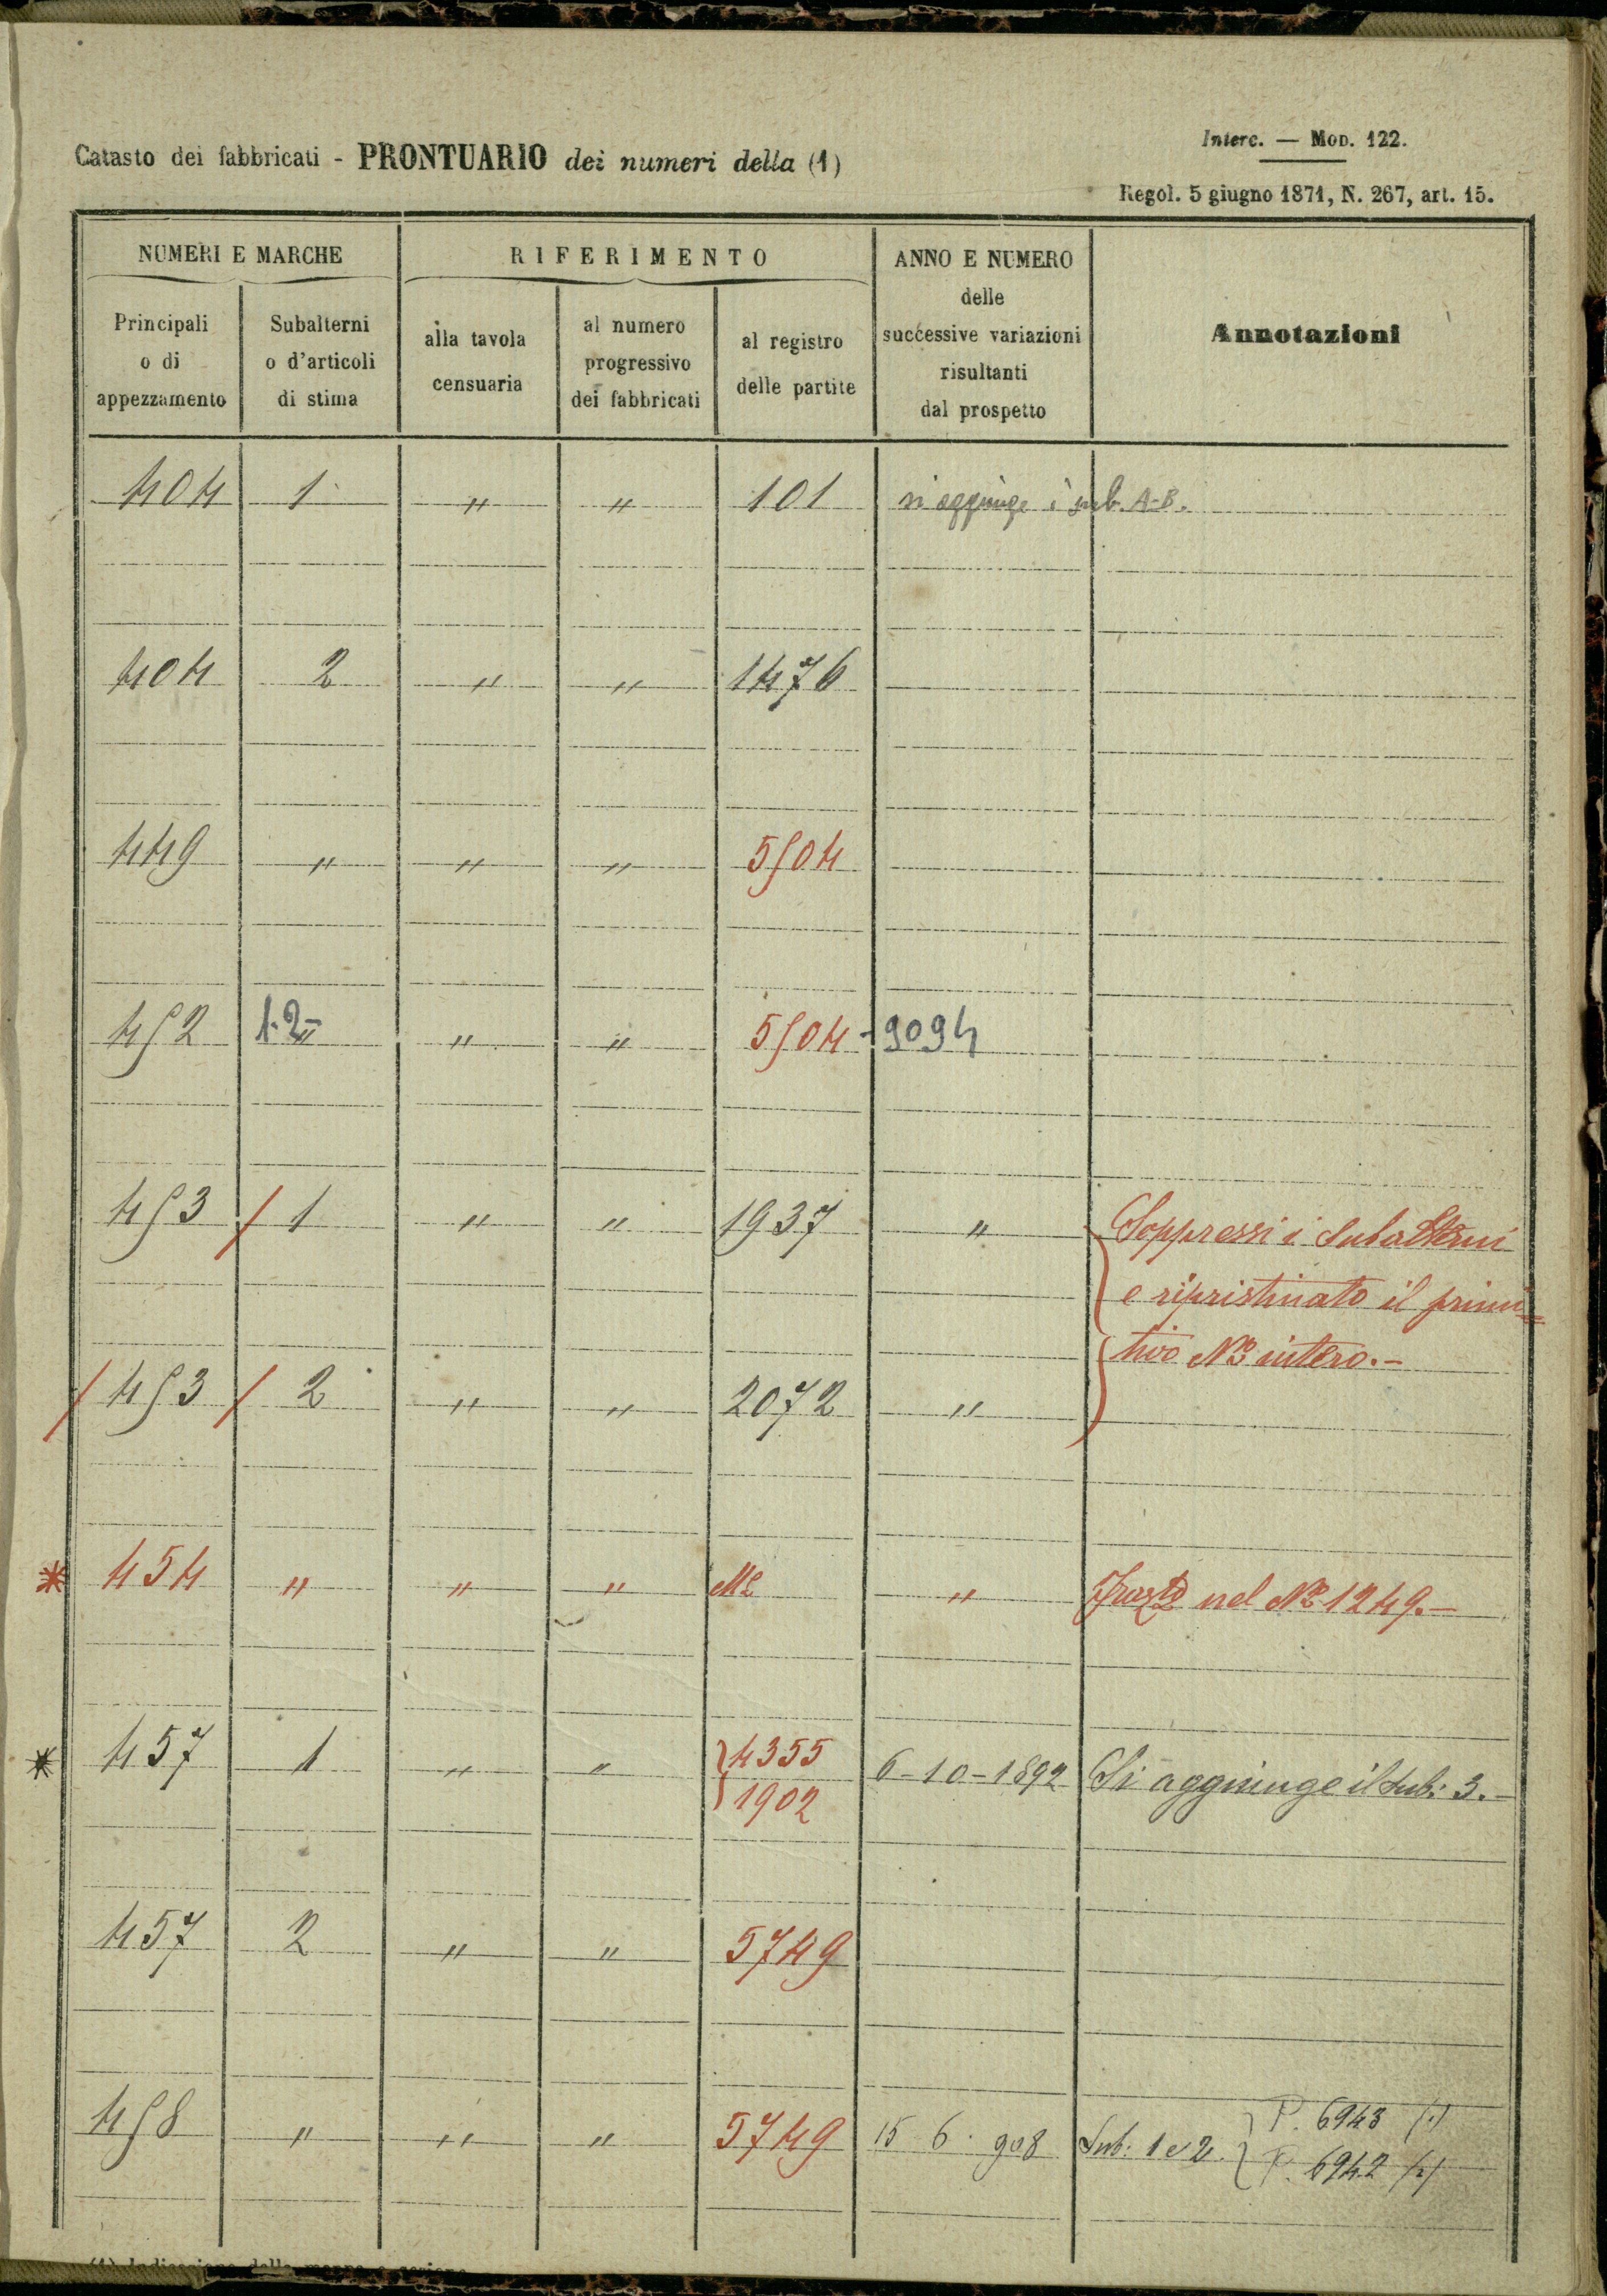 Interc. — Mod. 122.
Catasto dei fabbricati - PRONTUARIO dei numeri della (1)
Regol. 5 giugno 1871, N. 267, art. 15.
NUMERI E MARCHE RIFERIMENTO ANNO E NUMERO delle successive variazioni risultanti dal prospetto Annotazioni
Principali o di appezzamento Subalterni o d'articoli di stima alla tavola censuaria al numero progressivo dei fabbricati al registro delle partite
404 1 " " 101 si aggiunge i sub. A-B.
404 2 " " 1476
449 " " " 5504
452 1-2 " " " 5504 - 9094
453 / 1 " " 1937 " Soppressi i subalterni
e ripristinato il primi=
tivo No intero.-
/ 453 / 2 " " 2072 "
* 454 " " " " nel No 1249.-
* 457 1 " " 4355 6-10-1892 Si aggiunge il sub: 3.-
1902
457 2 " " 5749
458 " " " 5749 15 6. 908 Sub: 1 e 2. P. 6943 (1)
P. 6942 (2)